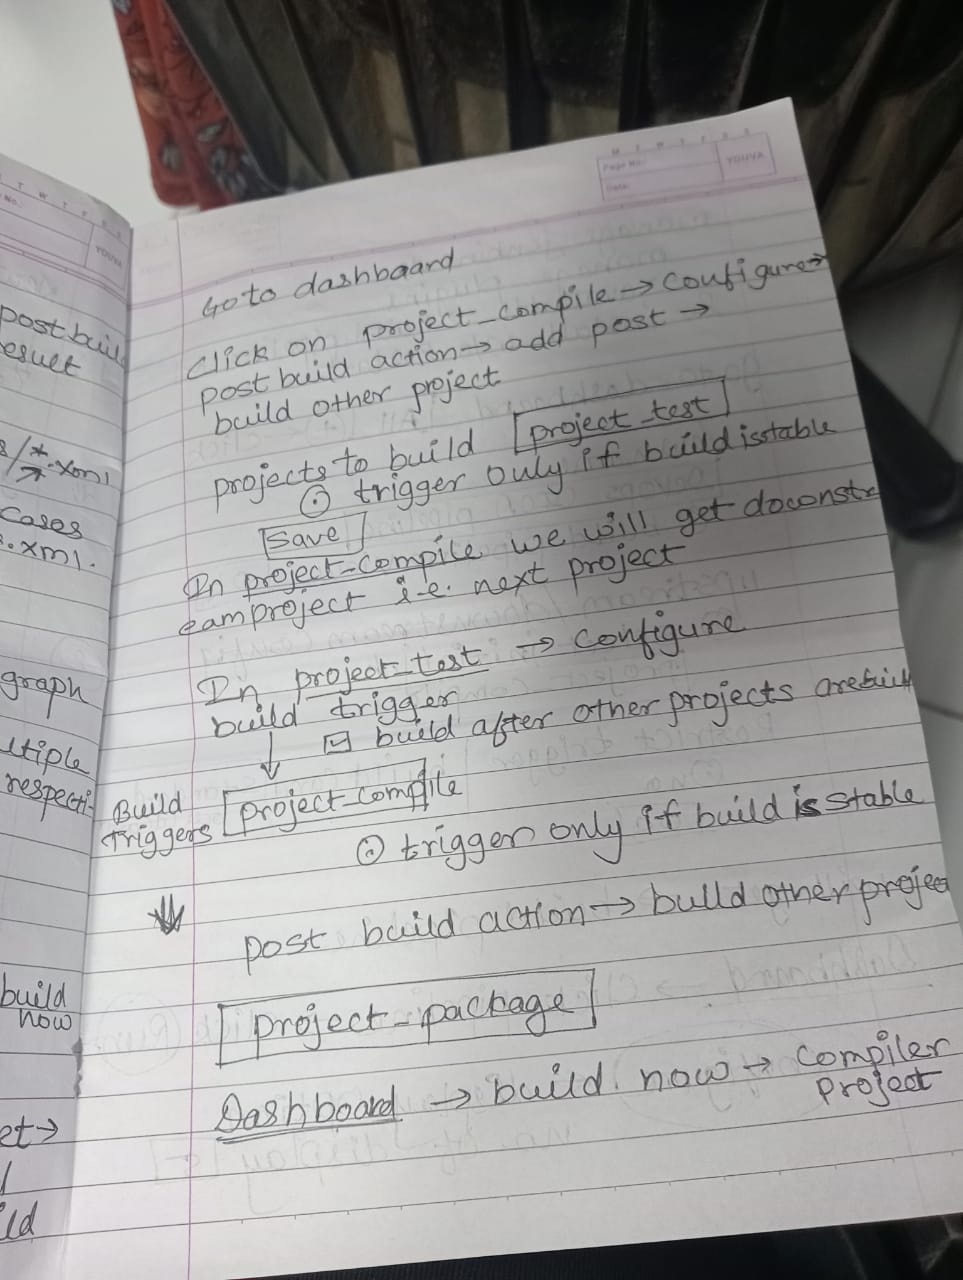 T W T F
No.:
YOUVA
post buil
esult
s/*.xml
Cases
s.xml.
graph
ltiple
respecti-
build
now
et→
ild
M T W T F S S
Page No.:
Date:
YOUVA
Goto dashbaard
Click on project_compile → Configure→
post build action→ add post →
build other project
projects to build [project_test]
⊙ trigger only if build isstable
[Save]
In project-compile we will get doconstr
eamproject i.e. next project
In project-test → configure
build trigger
☑ build after other projects arebuilt
↓
Build
triggers [project-compile]
⊙ trigger only if build is stable
⇓
post build action→ build other project
[project-package]
Dashboard → build now → Compiler
project